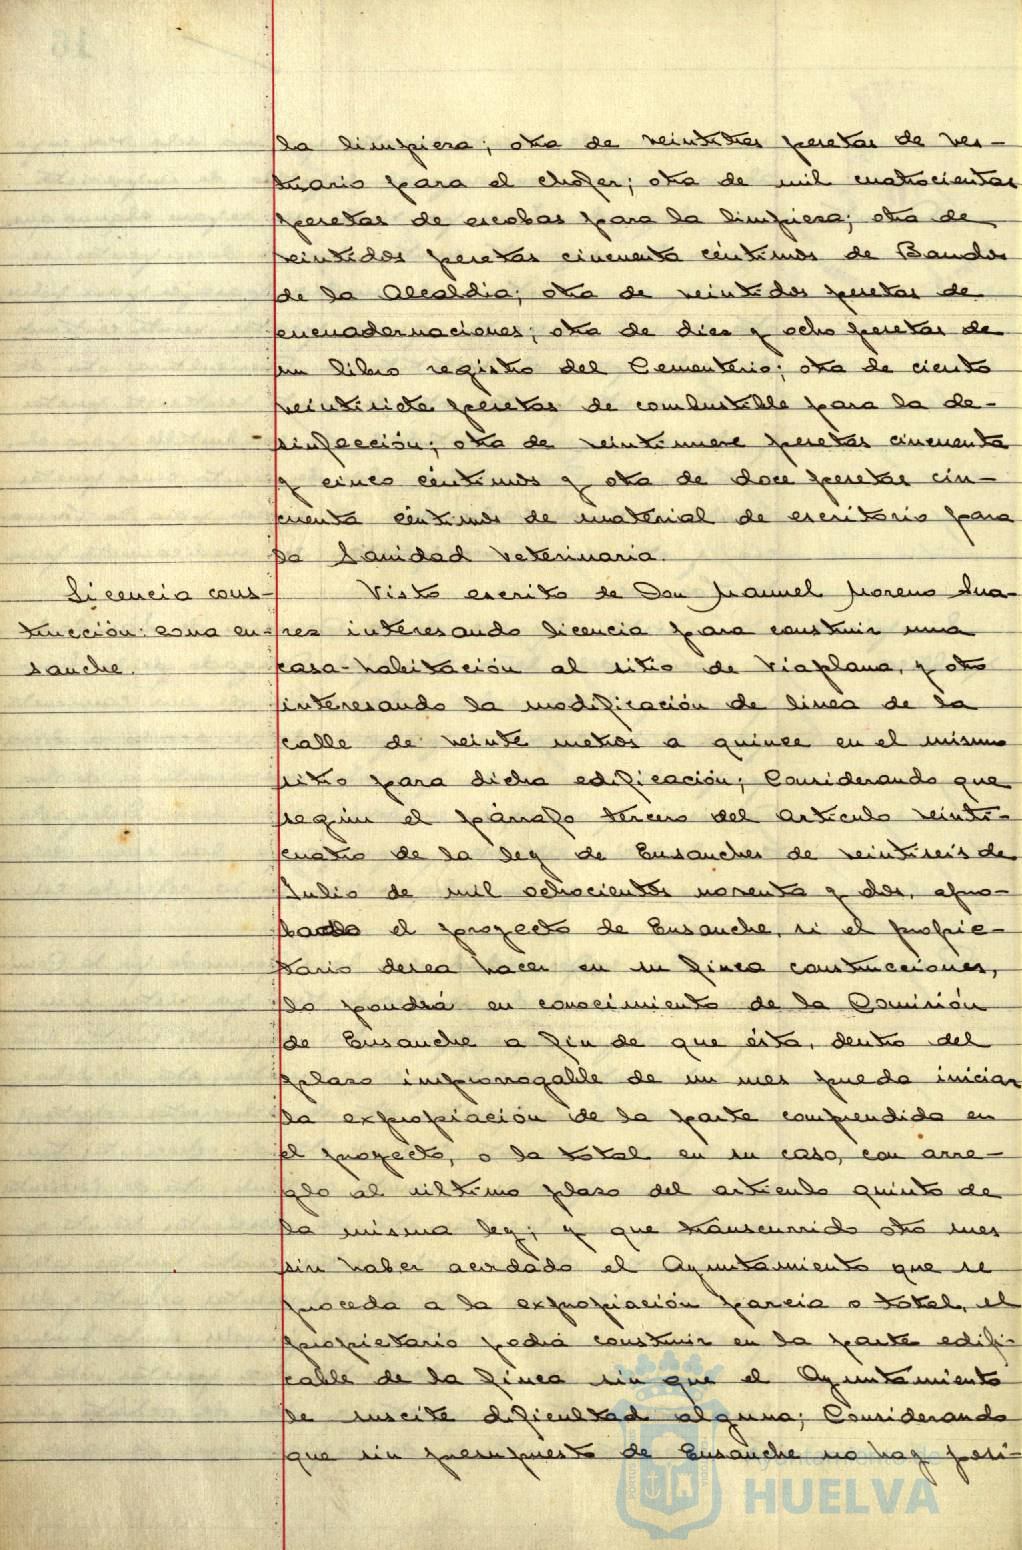 la limpieza; otra de veintitres pesetas de ves-
tuario para el chófer; otra de mil cuatrocientas
pesetas de escobas para la limpieza; otra de
veintidos pesetas cincuenta céntimos de Bandos
de la Alcaldia; otra de veintidos pesetas de
encuadernaciones; otra de diez y ocho pesetas de
un libro registro del Cementerio; otra de ciento
veintisiete pesetas de combustible para la de-
sinfección; otra de veintinueve pesetas cincuenta
y cinco céntimos y otra de doce pesetas cin-
cuenta céntimos de material de escritorio para
la Sanidad Veterinaria.
Licencia cons-
trucción: zona en-
sanche.
Visto escrito de Don Manuel Moreno Sua-
rez interesando licencia para construir una
casa-habitación al sitio de Viaplana, y otro
interesando la modificación de linea de la
calle de veinte metros a quince en el mismo
sitio para dicha edificación; Considerando que
según el párrafo tercero del articulo veinti-
cuatro de la ley de Ensanches de veintiseis de
Julio de mil ochocientos noventa y dos, apro-
bado el proyecto de Ensanche, si el propie-
tario desea hacer en su finca construcciones,
lo pondrá en conocimiento de la Comisión
de Ensanche a fin de que ésta, dentro del
plazo improrrogable de un mes pueda iniciar
la expropiación de la parte comprendida en
el proyecto, o la total en su caso, con arre-
glo al ultimo plazo del articulo quinto de
la misma ley; y que transcurrido otro mes
sin haber acordado el Ayuntamiento que se
proceda a la expropiación parcia o total, el
propietario podrá construir en la parte edifi-
cable de la finca sin que el Ayuntamiento
le suscite dificultad alguna; Considerando
que sin presupuesto de Ensanche no hay posi-
HUELVA